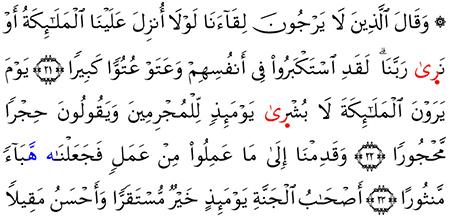 ۞ وَقَالَ ٱلَّذِينَ لَا يَرْجُونَ لِقَآءَنَا لَوْلَآ أُنزِلَ عَلَيْنَا ٱلْمَلَـٰٓئِكَةُ أَوْ
نَرٜىٰ رَبَّنَا ۗ لَقَدِ ٱسْتَكْبَرُوا۟ فِىٓ أَنفُسِهِمْ وَعَتَوْ عُتُوًّا كَبِيرًا ﴿٢١﴾ يَوْمَ
يَرَوْنَ ٱلْمَلَـٰٓئِكَةَ لَا بُشْرٜىٰ يَوْمَئِذٍ لِّلْمُجْرِمِينَ وَيَقُولُونَ حِجْرًا
مَّحْجُورًا ﴿٢٢﴾ وَقَدِمْنَآ إِلَىٰ مَا عَمِلُوا۟ مِنْ عَمَلٍ فَجَعَلْنَـٰه هَّبَآءً
مَّنثُورًا ﴿٢٣﴾ أَصْحَـٰبُ ٱلْجَنَّةِ يَوْمَئِذٍ خَيْرٌ مُّسْتَقَرًّا وَأَحْسَنُ مَقِيلًا